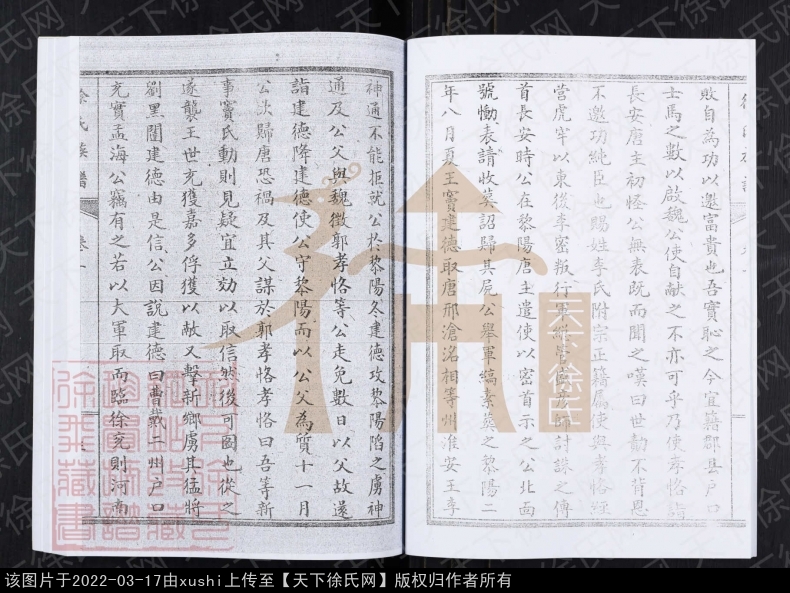 敗自為功以邀富貴也吾實恥之今宜籍郡縣户口
士馬之數以啟魏公使自献之不亦可乎乃使孝恪詣
長安唐主初怪公無表既而聞之嘆曰世勣不背恩
不邀功純臣也賜姓李氏附宗正籍属使與孝恪經
營虎牢以東後李密叛行軍總管盛彥師討誅之傳
首長安時公在黎陽唐主遣使以密首示之公北面
號慟表請收葬詔歸其屍公舉軍縞素葬之黎陽二
年八月夏王竇建德取唐邢滄洺相等州淮安王
神通不能拒就公於黎陽冬建德攻黎陽陷之虜神
通及公父與魏徵郭孝恪等公走免數日以父故還
詣建德降建德使公守黎陽而以公父為質十一月
公欲歸唐恐禍及其父謀於郭孝恪孝恪曰吾等新
事竇氏動則見疑宜立効以取信然後可圖也從之
遂襲王世充獲嘉多俘獲以献又擊新鄉虜其猛將
劉黑闥建德由是信公因說建德曰曹戴二州户口
充實孟海公竊有之若以大軍取而臨徐兗則河南
徐氏族譜
卷一
天下徐氏
天下徐氏网
该图片于2022-03-17由xushi上传至【天下徐氏网】版权归作者所有